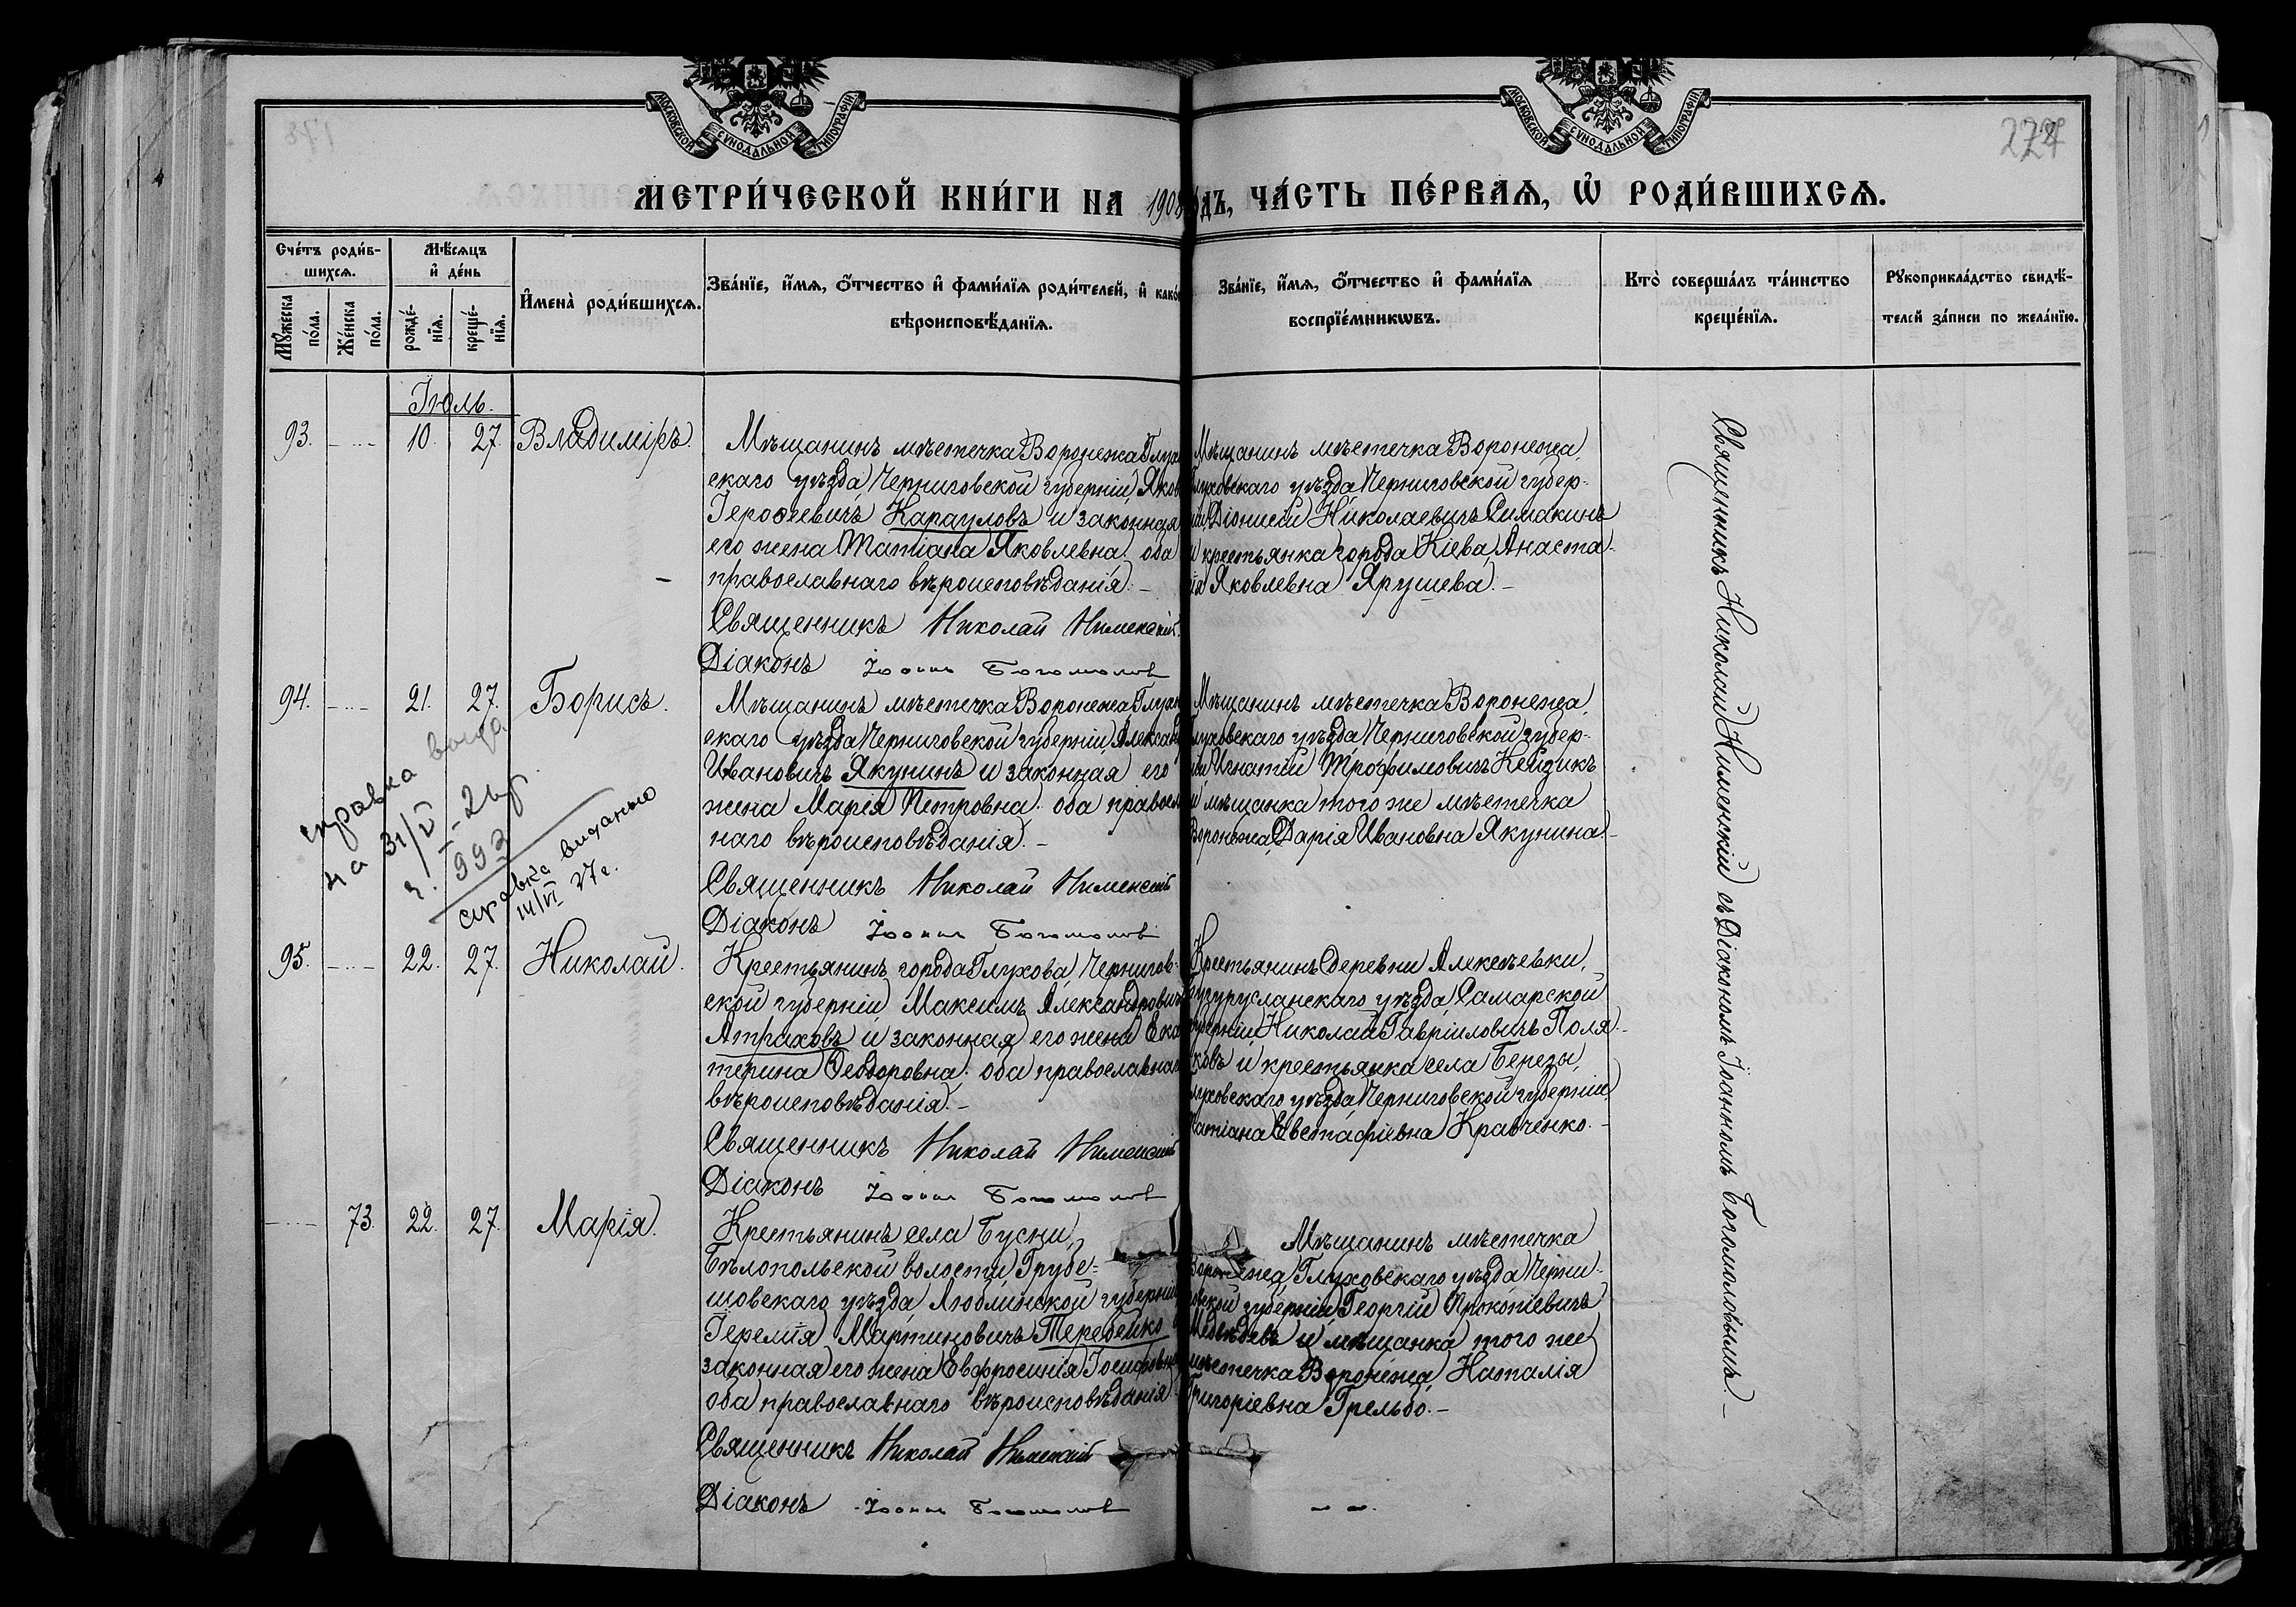 178
МОСКОВСКОЙ СѴНОДАЛЬНОЙ ТИПОГРАФІИ
МОСКОВСКОЙ СѴНОДАЛЬНОЙ ТИПОГРАФІИ
МЕТРИ́ЧЕСКОЙ КНИ́ГИ НА 1908 ДЪ, ЧА́СТЬ ПЕ́РВАѦ, Ѡ҆ РОДИ́ВШИХСѦ.
Сче́тъ роди́в-
шихсѧ.
Мꙋ́жеска
по́ла.
Же́нска
по́ла.
Мѣ́сѧцъ
и҆ де́нь
рожде́-
нїѧ.
креще́-
нїѧ.
И҆мена̀ роди́вшихсѧ.
Зва́нїе, и҆́мѧ, ѻ҆́тчество и҆ фами́лїѧ роди́телей, и҆ како́
вѣроисповѣ́данїѧ.
Зва́нїе, и҆́мѧ, ѻ҆́тчество и҆ фами́лїѧ
воспрїе́мникѡвъ.
Кто̀ соверша́лъ та́инство
креще́нїѧ.
Рꙋкоприкла́дство свидѣ́-
телей за́писи по жела́нїю.
Іюль.
93. 10. 27. Владиміръ.
Мѣщанинъ мѣстечка Воронежа Глухов
скаго уѣзда Черниговской губерніи, Яков
Іероѳеевичъ Карауловъ и законная
его жена Татіана Яковлевна, оба
православнаго вѣроисповѣданія.-
Священникъ Николай Нименскій
Діаконъ Іоаннъ Богомолов
Мѣщанинъ мѣстечка Воронежа,
Глуховскаго уѣзда Черниговской губер-
ніи, Діонисій Николаевичъ Симакинъ
и крестьянка города Кіева, Анаста-
ія Яковлевна Ярушева.-
94. 21. 27. Борисъ.
Мѣщанинъ мѣстечка Воронежа, Глухов
скаго уѣзда Черниговской губерніи, Александ
Ивановичъ Якунинъ и законная его
жена Марія Петровна, оба правосл
наго вѣроисповѣданія.-
Священникъ Николай Нименскій
Діаконъ Іоаннъ Богомолов
Мѣщанинъ мѣстечка Воронежа,
Глуховскаго уѣзда Черниговской губер-
ніи, Игнатій Трофимовичъ Кейдикъ
и мѣщанка того же мѣстечка
Воронежа, Дарія Ивановна Якунина.-
справка
на 31/V - 2
ч. 993
справка видана
14/VI 27г.
95. 22. 27. Николай.
Крестьянинъ города Глухова, Чернигов-
ской губерніи, Максимъ Александровичъ
Атраховъ и законная его жена Ека
терина Ѳеодоровна, оба православнаго
вѣроисповѣданія.-
Священникъ Николай Нименскій
Діаконъ Іоаннъ Богомолов
Крестьянинъ деревни Алексѣевки,
Бугурусланскаго уѣзда, Самарской
губерніи, Николай Гавріиловичъ Поля-
ковъ и крестьянка села Березы,
Глуховскаго уѣзда Черниговской губерніи,
Татіана Евстафіевна Кравченко.-
73. 22. 27. Марія.
Крестьянинъ села Бусни,
Бѣлопольской волости, Грубе-
шовскаго уѣзда, Люблинской губерніи
Іеремія Мартиновичъ Теребейко и
законная его жена Евфросинія Іосифовна
оба православнаго вѣроисповѣданія.
Священникъ Николай Нименскій
Діаконъ Іоаннъ Богомолов
Мѣщанинъ мѣстечка
Воронежа, Глуховскаго уѣзда, Черни-
говской губерніи, Георгій Прокопіевичъ
Медвѣдевъ и мѣщанка того же
мѣстечка Воронежа, Наталія
Григоріевна Грельбо.-
Священникъ Николай Нименскій съ Діакономъ Іоанномъ Богомоловымъ.-